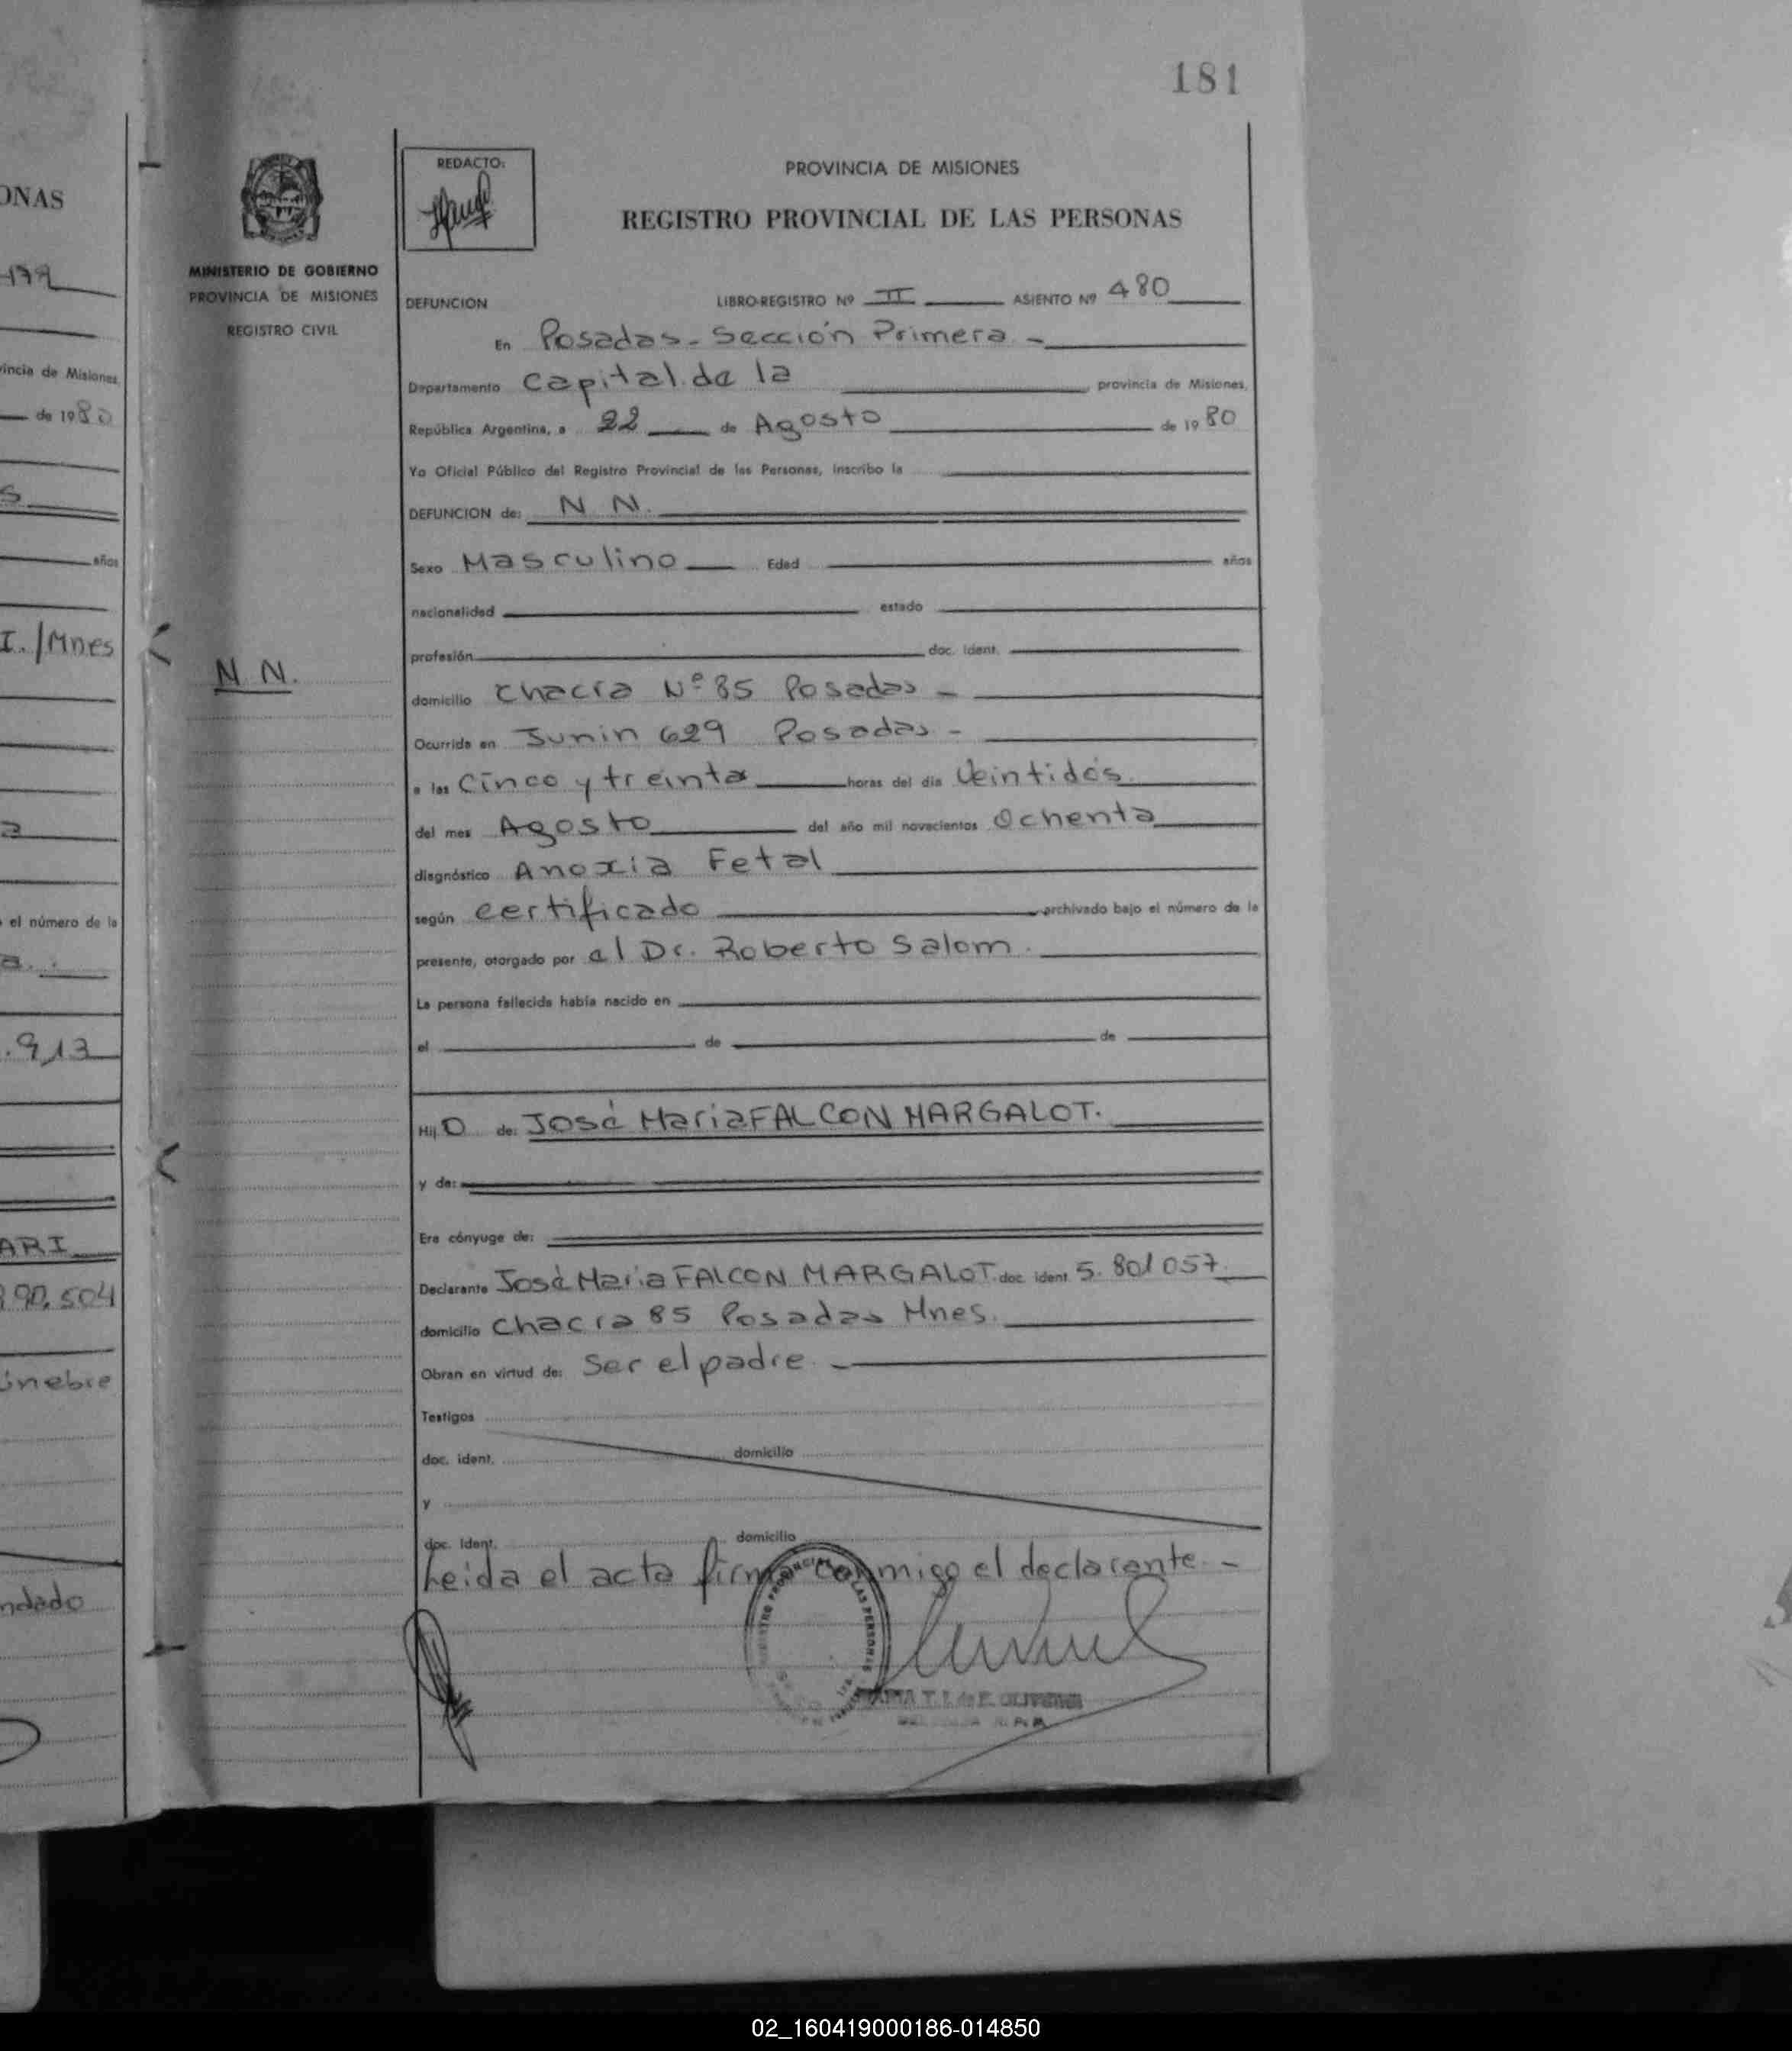 181
ONAS
179
vincia de Misiones,
de 1980
S
años
I./Mnes
a
o el número de la
a.
.913
ARI
890.504
únebre
ndado
MINISTERIO DE GOBIERNO
PROVINCIA DE MISIONES
REGISTRO CIVIL
N N.
REDACTO:
PROVINCIA DE MISIONES
REGISTRO PROVINCIAL DE LAS PERSONAS
DEFUNCION LIBRO-REGISTRO Nº II ASIENTO Nº 480
En Posadas - Sección Primera -
Departamento Capital de la provincia de Misiones,
República Argentina, a 22 de Agosto de 1980
Yo Oficial Público del Registro Provincial de las Personas, inscribo la
DEFUNCION de: N N.
Sexo Masculino Edad años
nacionalidad estado
profesión doc. ident.
domicilio Chacra Nº 85 Posadas -
Ocurrida en Junin 629 Posadas -
a las Cinco y treinta horas del día Veintidós
del mes Agosto del año mil novecientos Ochenta
diagnóstico Anoxia Fetal
según certificado archivado bajo el número de la
presente, otorgado por el Dr. Roberto Salom.
La persona fallecida había nacido en
el de de
Hij O de: José Maria FALCON MARGALOT.
y de:
Era cónyuge de:
Declarante José Maria FALCON MARGALOT. doc. ident. 5.801057
domicilio Chacra 85 Posadas Mnes.
Obran en virtud de: Ser el padre -
Testigos
doc. ident. domicilio
y
doc. ident. domicilio
Leida el acta firma conmigo el declarante. -
02_160419000186-014850